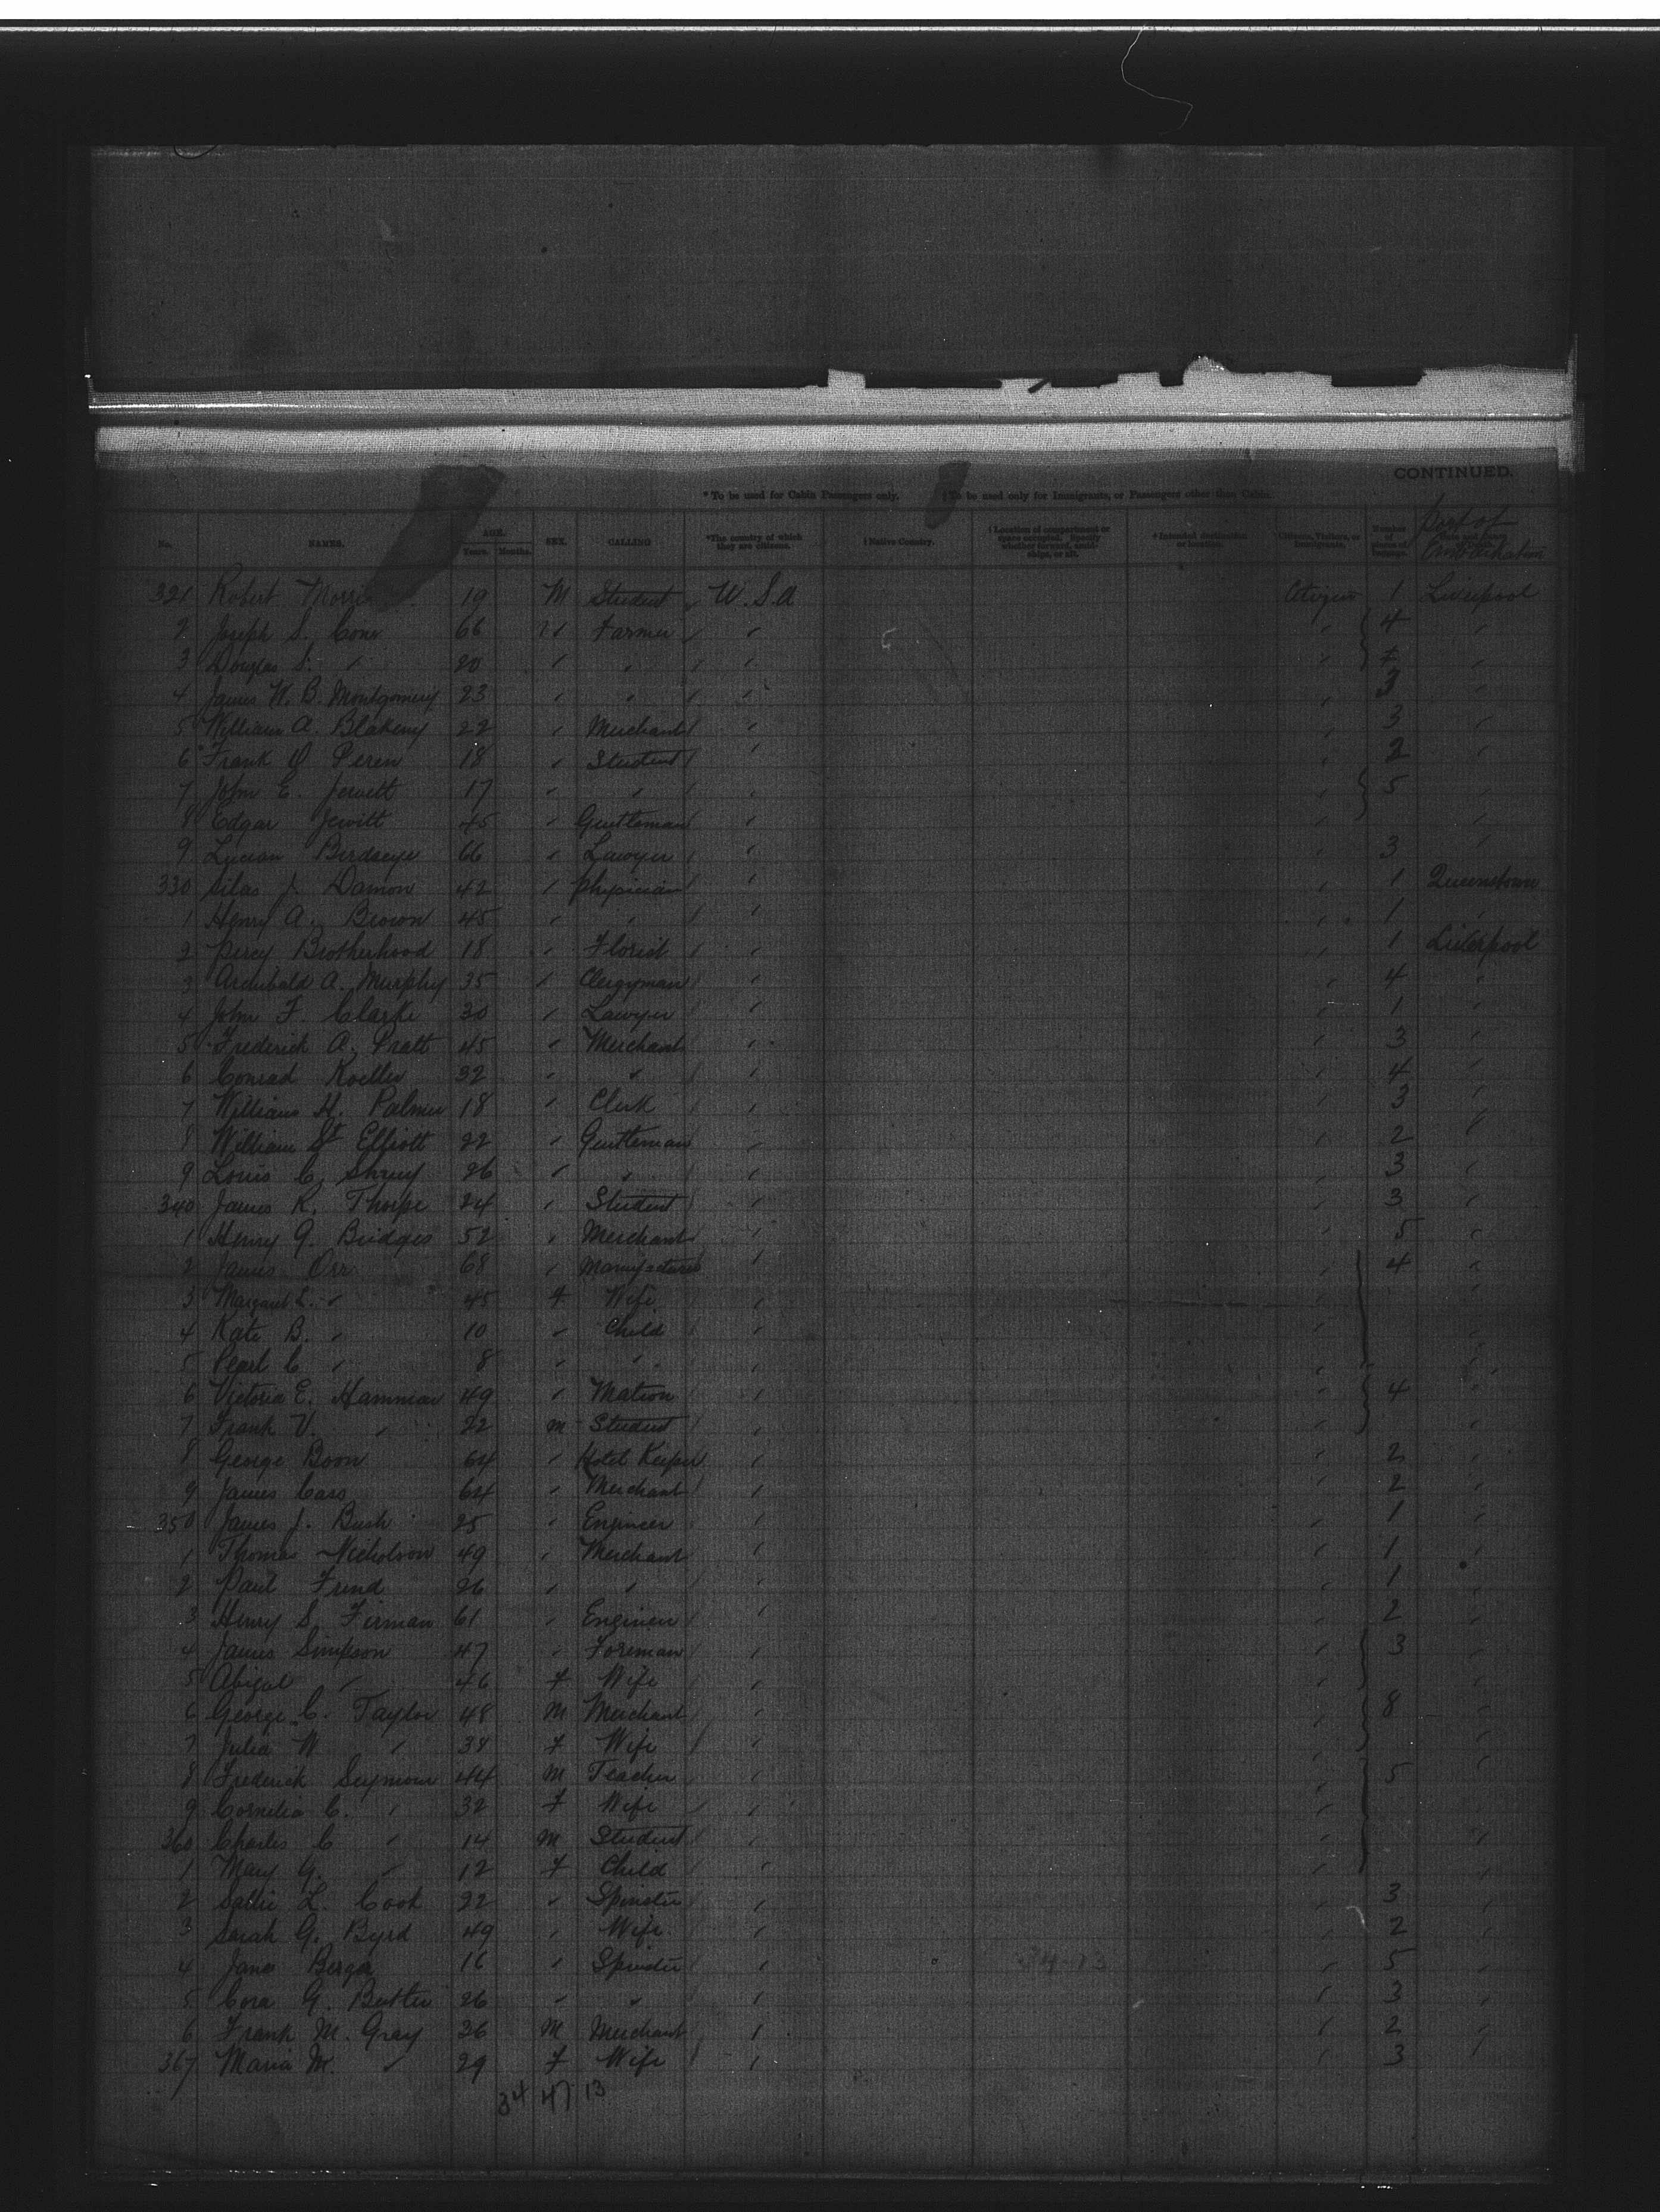 CONTINUED.
* To be used for Cabin Passengers only. † To be used only for Immigrants, or Passengers other than Cabin.
No. NAMES. AGE. Years. Months. SEX. CALLING *The country of which they are citizens. † Native Country. † Location of compartment or space occupied. † Intended destination or location. Citizens, Visitors, or Immigrants. Number of pieces of baggage. Port of Embarkation
321 Robert 19 M Student U.S.A Citizen 1 Liverpool
2 Joseph S. Cone 66 " Farmer " " 4 "
3 Douglas S. " 20 " " " " "
4 James W. B. Montgomery 23 " " " " 3 "
5 William A. Blakeny 22 " Merchant " " 3 "
6 Frank O Peren 18 " Student " " 2 "
7 John E. Jewett 17 " " " " 5 "
8 Edgar Jewitt 45 " Gentleman " " "
9 Lucian Birdseye 66 " Lawyer " " 3 "
330 Silas J. Damon 42 " Physician " " 1 Queenstown
1 Henry A. Brown 45 " " " " 1 "
2 Percy Brotherhood 18 " Florist " " 1 Liverpool
3 Archibald A. Murphy 35 " Clergyman " " 4 "
4 John F. Clarke 30 " Lawyer " " 1 "
5 Frederick A. Pratt 45 " Merchant " " 3 "
6 Conrad Koeller 32 " " " " 4 "
7 William H. Palmer 18 " Clerk " " 3 "
8 William St Elliott 22 " Gentleman " " 2 "
9 Louis C. 26 " " " " 3 "
340 James R. Thorpe 24 " Student " " 3 "
1 Henry G. Bridges 52 " Merchant " " 5 "
2 James Orr 68 " Manufacturer " " 4 "
3 Margaret L. " 45 F Wife " " "
4 Kate B. " 10 " Child " " "
5 Pearl C. " 8 " " " " "
6 Victoria E. Hammar 49 " Matron " " 4 "
7 Frank V. " 22 M Student " " "
8 George Boon 64 " Hotel Keeper " " 2 "
9 James Cass 64 " Merchant " " 2 "
350 James J. Bush 25 " Engineer " " 1 "
1 Thomas Nicholson 49 " Merchant " " 1 "
2 Paul Frend 26 " " " " 1 "
3 Henry S. Firman 61 " Engineer " " 2 "
4 James Simpson 47 " Foreman " " 3 "
5 Abigal " 46 F Wife " " "
6 George C. Taylor 48 M Merchant " " 8 "
7 Julia W " 34 F Wife " " "
8 Frederick Seymour 44 M Teacher " " 5 "
9 Cornelia C. " 32 F Wife " " "
360 Charles C " 14 M Student " " "
1 Mary G. " 12 F Child " " "
2 Sallie L. Cook 22 " Spinster " " 3 "
3 Sarah G. Byrd 49 " Wife " " 2 "
4 Jane Berger 16 " Spinster " " 5 "
5 Cora G. Butler 26 " " " " 3 "
6 Frank M. Gray 36 M Merchant " " 2 "
367 Maria M. " 29 F Wife " " 3 "
34 47 13